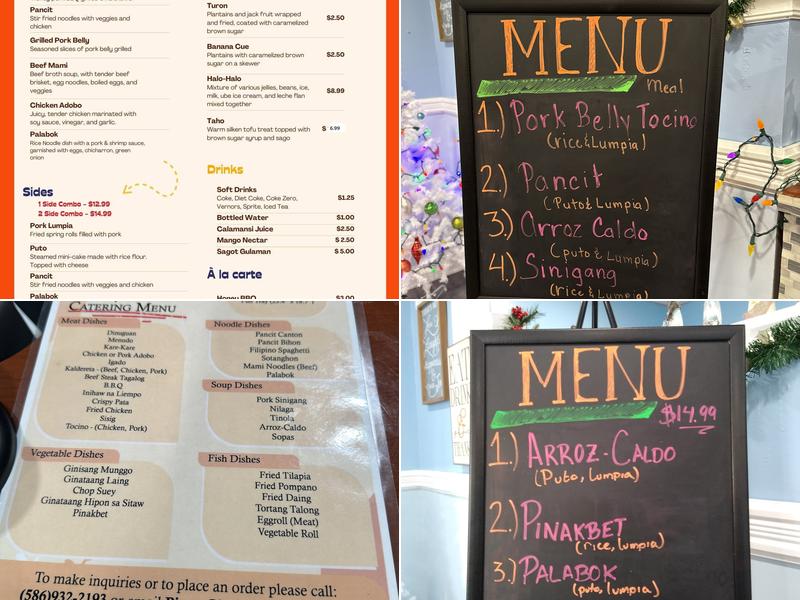 Pancit
Stir fried noodles with veggies and
chicken
Grilled Pork Belly
Seasoned slices of pork belly grilled
Beef Mami
Beef broth soup, with tender beef
brisket, egg noodles, boiled eggs, and
veggies
Chicken Adobo
Juicy, tender chicken marinated with
soy sauce, vinegar, and garlic.
Palabok
Rice Noodle dish with a pork & shrimp sauce,
garnished with eggs, chicharron, green
onion
Sides
1 Side Combo - $12.99
2 Side Combo - $14.99
Pork Lumpia
Fried spring rolls filled with pork
Puto
Steamed mini-cake made with rice flour.
Topped with cheese
Pancit
Stir fried noodles with veggies and chicken
Palabok
Turon
Plantains and jack fruit wrapped
and fried, coated with caramelized
brown sugar
$2.50
Banana Cue
Plantains with caramelized brown
sugar on a skewer
$2.50
Halo-Halo
Mixture of various jellies, beans, ice,
milk, ube ice cream, and leche flan
mixed together
$8.99
Taho
Warm silken tofu treat topped with
brown sugar syrup and sago
$ 6.99
Drinks
Soft Drinks
Coke, Diet Coke, Coke Zero,
Vernors, Sprite, Iced Tea
$1.25
Bottled Water $1.00
Calamansi Juice $2.50
Mango Nectar $ 2.50
Sagot Gulaman $ 5.00
À la carte
Honey BBQ $1.00
MENU
Meal
1.) Pork Belly Tocino
(rice & Lumpia)
2.) Pancit
(Puto & Lumpia)
3.) Arroz Caldo
(puto & Lumpia)
4.) Sinigang
(rice & Lumpia)
Catering Menu
Meat Dishes
Dinuguan
Menudo
Kare-Kare
Chicken or Pork Adobo
Igado
Kaldereta - (Beef, Chicken, Pork)
Beef Steak Tagalog
B.B.Q
Inihaw na Liempo
Crispy Pata
Fried Chicken
Sisig
Tocino - (Chicken, Pork)
Vegetable Dishes
Ginisang Munggo
Ginataang Laing
Chop Suey
Ginataang Hipon sa Sitaw
Pinakbet
Noodle Dishes
Pancit Canton
Pancit Bihon
Filipino Spaghetti
Sotanghon
Mami Noodles (Beef)
Palabok
Soup Dishes
Pork Sinigang
Nilaga
Tinola
Arroz-Caldo
Sopas
Fish Dishes
Fried Tilapia
Fried Pompano
Fried Daing
Tortang Talong
Eggroll (Meat)
Vegetable Roll
To make inquiries or to place an order please call:
(586)932-2193 or email
MENU
$14.99
1.) ARROZ-CALDO
(Puto, lumpia)
2.) PINAKBET
(rice, lumpia)
3.) PALABOK
(puto, lumpia)